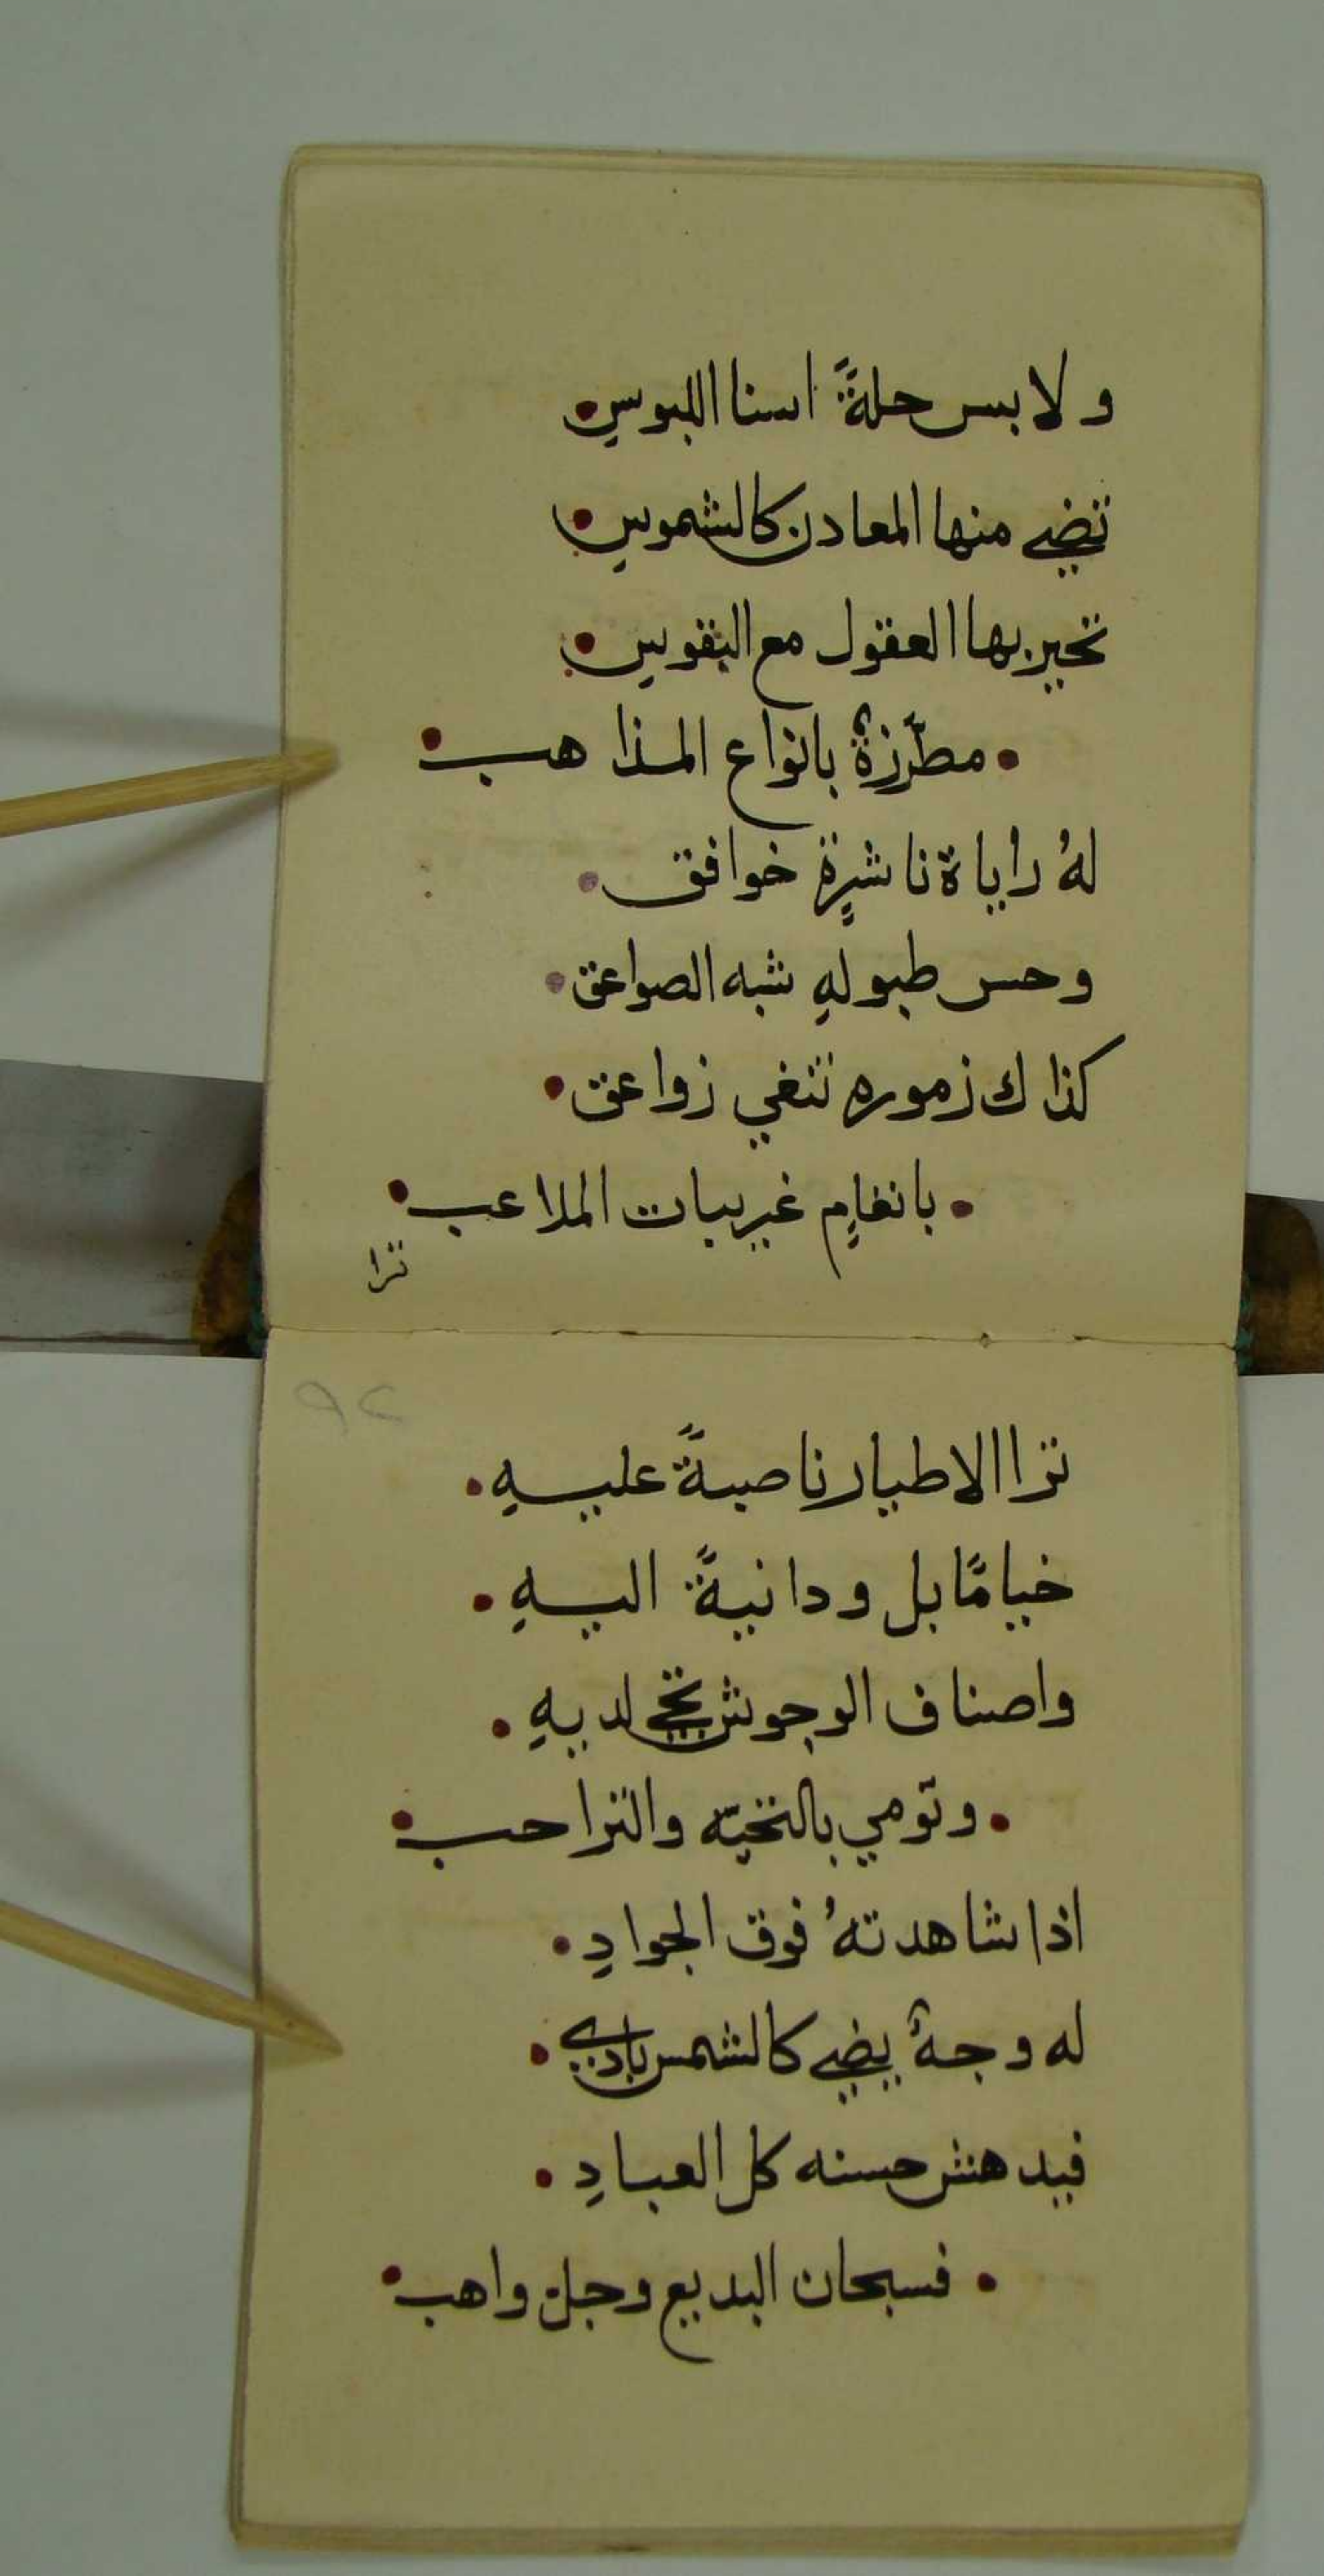 ولابس حلةً اسنا اللبوسِ
تضيے منها المعادن كالشموسِ
تحير بها العقول مع النفوسِ
مطرّزةٌ بانواع المذاهب
لهُ راياة ناشرةٍ خوافق
وحس طبولهِ شبه الصواعق
كذاك زموره تنغي زواعق
بانغامٍ غريبات الملاعب
ترا
٩٢
ترا الاطيار ناصبةً عليهِ
خيامًا بل ودانيةً اليهِ
واصناف الوحوش تجي لديهِ
وتومي بالتحيّه والتراحب
اذا شاهدتهُ فوق الجوادِ
له وجهٌ يضيے كالشمس بادي
فيدهش حسنه كل العبادِ
فسبحان البديع وجل واهب